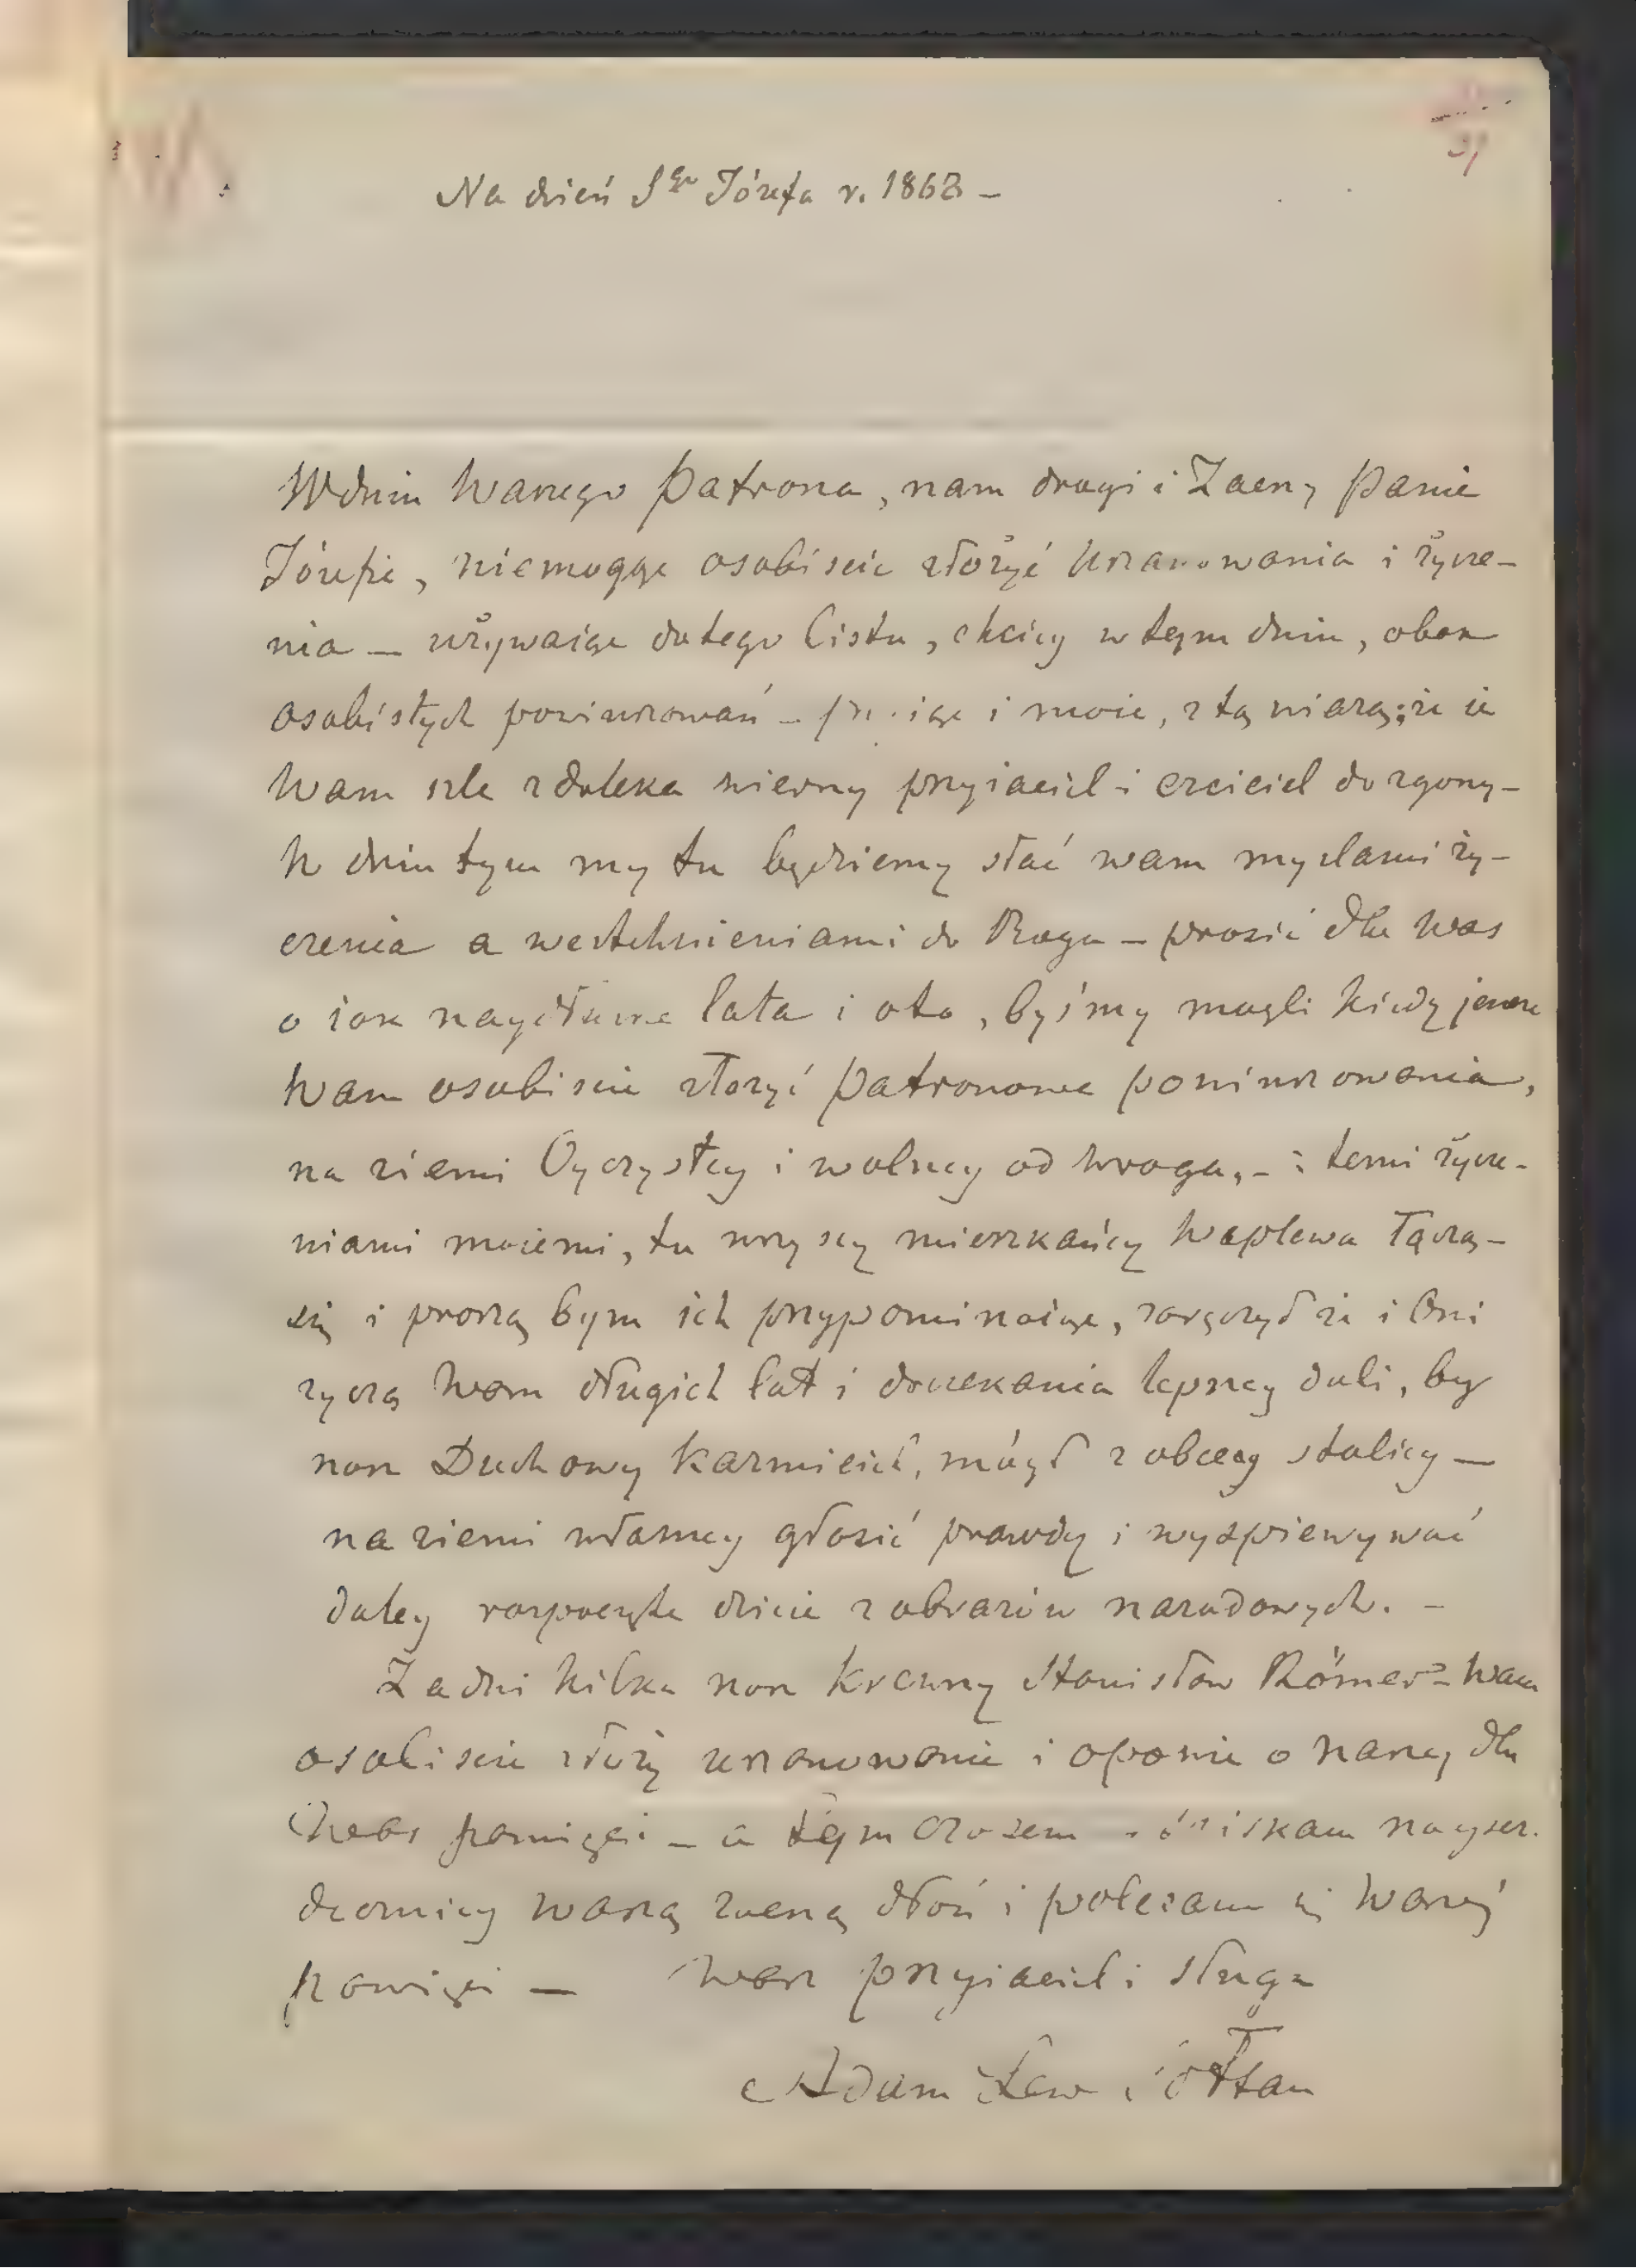 Na dzień Sgo Józefa r. 1868 –
Wdniu Waszego Patrona, nam drogi i Zacny Panie
Józefie, niemogąc osobiscie złożyć uszanowania i życze–
nia – używaiąc dotego listu, chciey w tym dniu, obok
osobistych powinszowań – i moie, z tą wiarą; że je
Wam szle zdaleka wierny przyiaciel i czciciel dozgony –
W dniu tym my tu będziemy słać wam myslami ży–
czenia a westchnieniami do Boga – prosić dla Was
o jak naydłuższe lata i oto, byśmy mogli kiedy jeszcze
Wam osobiscie złożyć patronowe powinszowania,
na ziemi Oyczystey i wolney od wroga, – i temi życze–
niami moiemi, tu wszyscy mieszkańcy Waplewa łączą–
się i proszą bym ich przypominaiąc, zaręczył że i Oni
życzą Wam długich lat i doczekania lepszey doli, by
nasz Duchowy Karmiciel, mógł z obcey stolicy –
na ziemi własney głosić prawdy i wyśpiewywać
daley rozpoczęte dzieie z obrazów narodowych. –
Za dni kilka nasz Krewny Stanisław Römer – Wam
osobiscie złoży uszanowanie i opowie o naszey dla
Was pamięci – a tym czasem – ściskam nayser–
deczniey waszą zacną dłoń i polecam się Waszéy
pamięci – Wasz przyiaciel i sługa
Adam Lew Sołtan